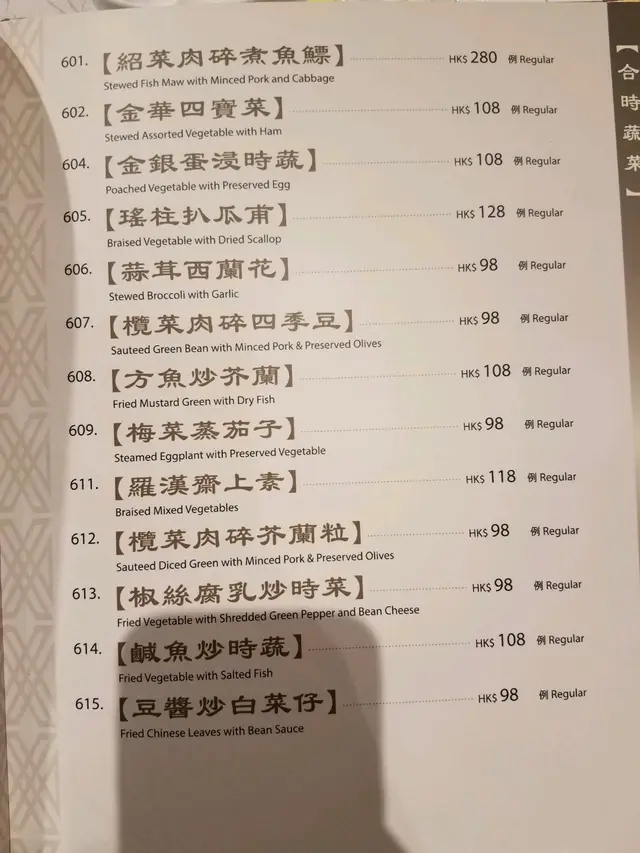 601. 【紹菜肉碎煮魚鰾】 HK$ 280 例 Regular
Stewed Fish Maw with Minced Pork and Cabbage
602. 【金華四寶菜】 HK$ 108 例 Regular
Stewed Assorted Vegetable with Ham
604. 【金銀蛋浸時蔬】 HK$ 108 例 Regular
Poached Vegetable with Preserved Egg
605. 【瑤柱扒瓜甫】 HK$ 128 例 Regular
Braised Vegetable with Dried Scallop
606. 【蒜茸西蘭花】 HK$ 98 例 Regular
Stewed Broccoli with Garlic
607. 【欖菜肉碎四季豆】 HK$ 98 例 Regular
Sauteed Green Bean with Minced Pork & Preserved Olives
608. 【方魚炒芥蘭】 HK$ 108 例 Regular
Fried Mustard Green with Dry Fish
609. 【梅菜蒸茄子】 HK$ 98 例 Regular
Steamed Eggplant with Preserved Vegetable
611. 【羅漢齋上素】 HK$ 118 例 Regular
Braised Mixed Vegetables
612. 【欖菜肉碎芥蘭粒】 HK$ 98 例 Regular
Sauteed Diced Green with Minced Pork & Preserved Olives
613. 【椒絲腐乳炒時菜】 HK$ 98 例 Regular
Fried Vegetable with Shredded Green Pepper and Bean Cheese
614. 【鹹魚炒時蔬】 HK$ 108 例 Regular
Fried Vegetable with Salted Fish
615. 【豆醬炒白菜仔】 HK$ 98 例 Regular
Fried Chinese Leaves with Bean Sauce
【合時蔬菜】